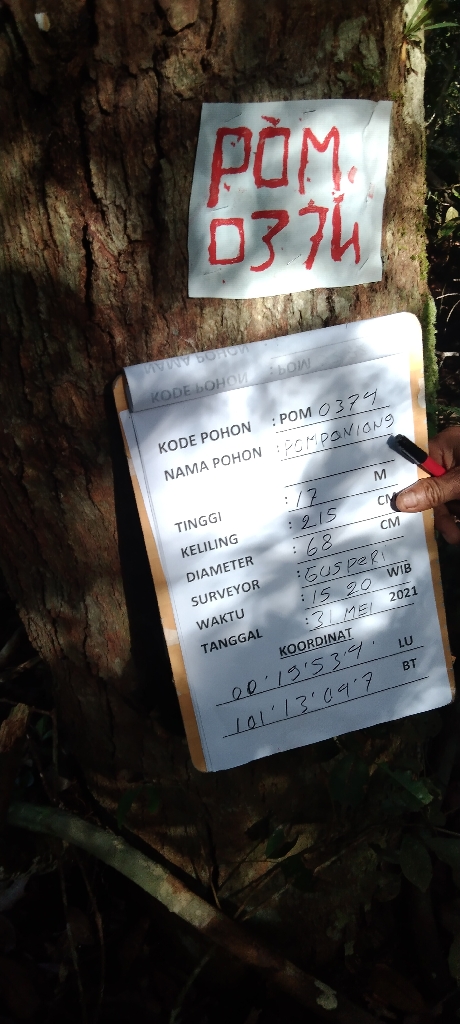 POM.
0374
NAMA POHON
KODE POHON : POM
KODE POHON : POM 0374
NAMA POHON : POMPANIANG
TINGGI : 17 M
KELILING : 215 CM
DIAMETER : 68 CM
SURVEYOR : GUSPERI
WAKTU : 15 20 WIB
TANGGAL : 31 MEI 2021
KOORDINAT
00'19'53'9. LU
101'13'09'7 BT